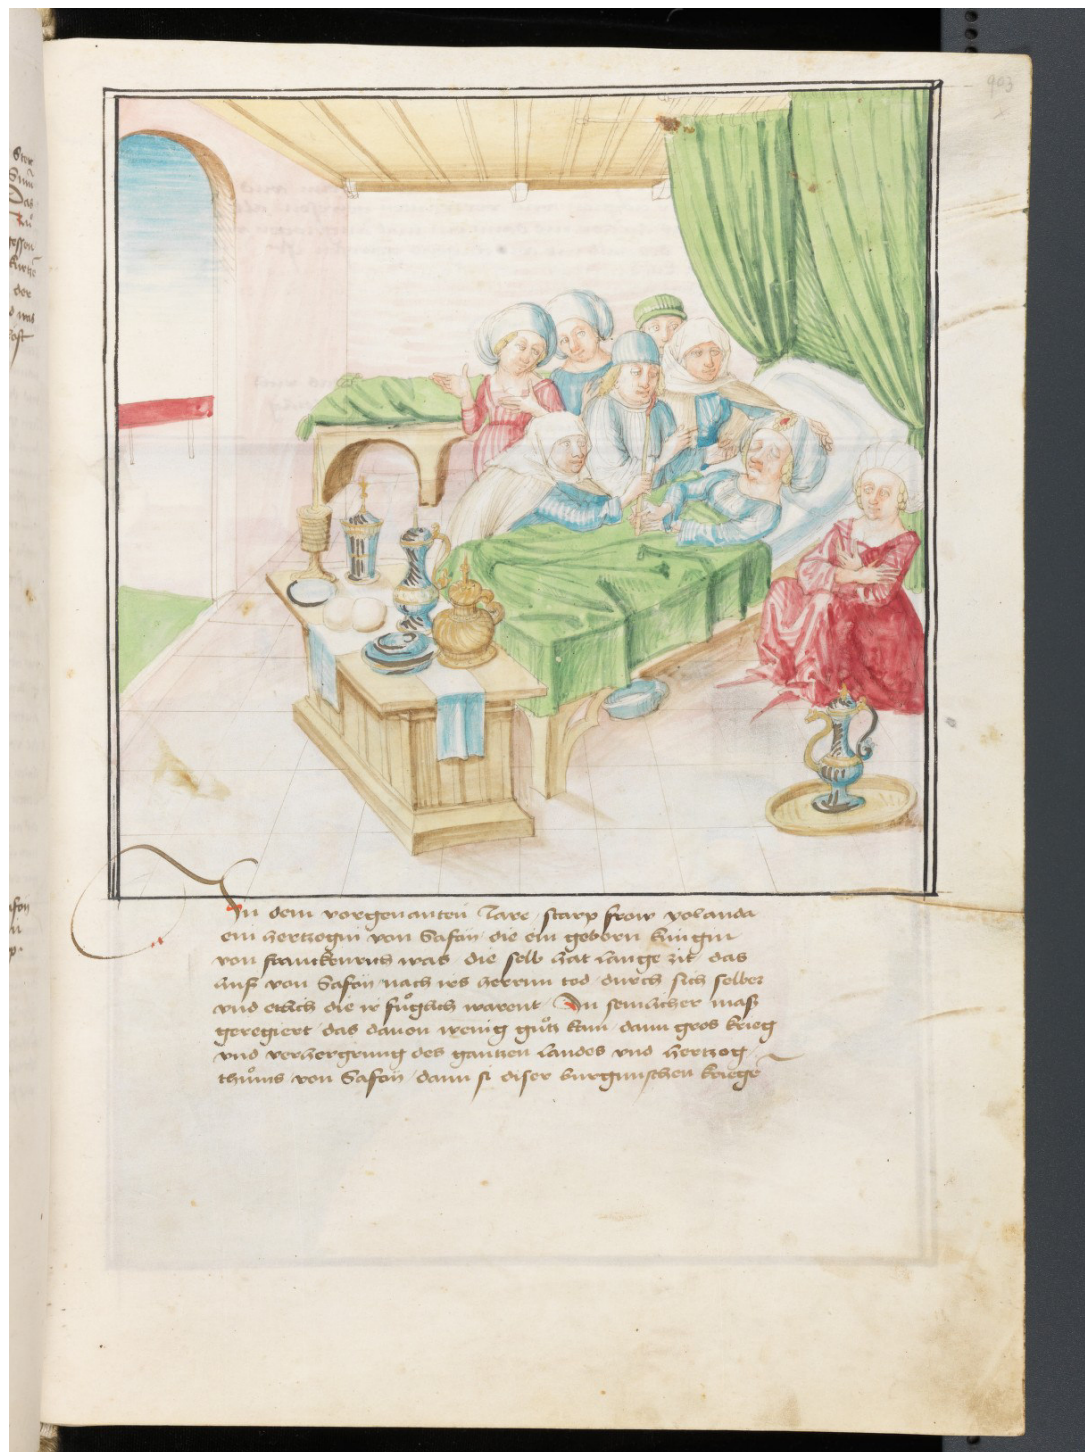 903
In dem vorgenanten Jare starp frow yolanda
ein hertzogin von Safoy die ein geborn kúngin
von franckenrich was die selb hat lange zit das
huß von Safoy nach irs herren tod durch sich selber
vnd etlich die ir fuͦglich warent In semlicher maß
geregiert das dauon wenig guͦtz kam dann gros krieg
vnd verhergrung des gantzen landes vnd hertzog
thuͦms von Safoy dann si diser burgunschen kriege